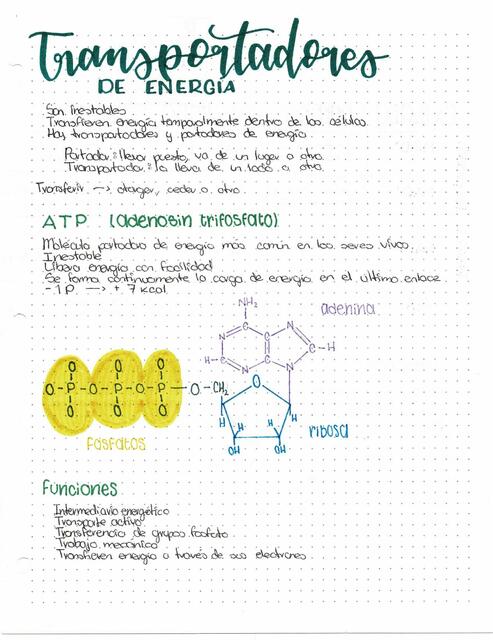 Transportadores
DE ENERGÍA
Son inestables
Transfieren energía temporalmente dentro de las células
Hay transportadores y portadores de energía
Portador: lleva puesto, va de un lugar a otro
Transportador: lo lleva de un lado a otro
Transferir → otorgar, ceder a otro
ATP (adenosin trifosfato)
Molécula portadora de energía más común en los seres vivos
Inestable
Libera energía con facilidad
Se forma continuamente la carga de energía en el último enlace
-1P → + 7 kcal
NH₂
adenina
N N
H-C C C C-H
N N
O O O
O-P-O-P-O-P-O-CH₂ O
O O O
H H H H
OH OH
ribosa
fosfatos
Funciones
Intermediario energético
Transporte activo
Transferencia de grupos fosfato
Trabajo mecánico
Transfieren energía a través de sus electrones